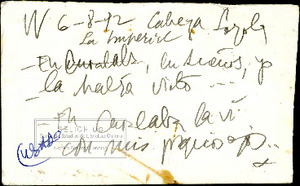 W 6-8-92 Cabeza Loyola
La Imperial
— En Curalaba, en sueños, yo
la había visto —
En Curalaba la vi
con mis propios ojos..